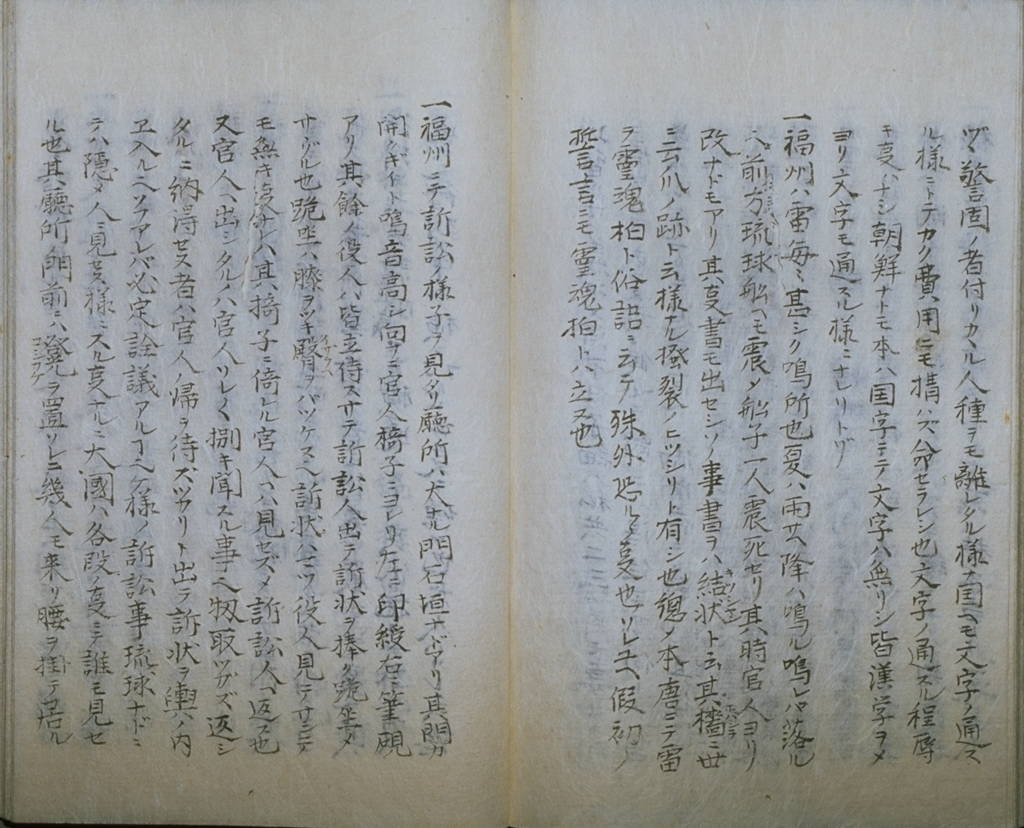 ヅヽ警固ノ者付リカヽル人種ヲモ離レタル様ナ国ヘモ文字ノ通ス
ル様ニトテカク費用ニモ構ハズ命セラレシ也文字ノ通スル程辱
キ事ハナシ朝鮮ナトモ本ハ国字ニテ文字ハ無リシ皆漢学ヲメ
ヨリ文字モ通スル様ニナレリトゾ
一福州ハ雷毎々甚シク鳴所也夏ハ雨サヘ降ハ鳴ル鳴レハ落ル
ヘ前方琉球舩ヘモ震メ舩子一人震死セリ其時官人ヨリ
改ナドモアリ其事書モ出セシソノ事書ヲハ結状ト云其檣ニ世
ニ云爪ノ跡ト云様ナル掻裂ノヒツシリト有シ也総メ本唐ニテ雷
ヲ霊魂柏ト俗語ニ云テ殊外恐ルヽ事也ソレ故假初ノ
誓言ニモ霊魂拍トハ立ヌ也
一福州ニテ訴訟ノ様子ヲ見タリ廳所ハ大ナル門石垣ナドアリ其門ヵ
開クギイト鳴音高シ向フニ官人椅子ニヨレリ左ニ印綬右ニ筆硯
アリ其餘ノ役人ハ皆立侍スサテ訴訟人出テ訴状ヲ捧ク跪坐メ
サヅル也跪坐ハ膝ヲツキ臀ヲバツケス訴状ハ三ツ役人見テサシテ
モ無キ事ナレハ其椅子ニ倚レル官人ヘハ見セズメ訴訟人ヘ返ス也
又官人ヘ出シタルハ官人ソレ〱捌キ聞スル事ヘ扨取ツガズ返シ
タルニ納得セス者ハ官人帰ヲ待ズツカリト出テ訴状ヲ輿ハ内
ヱ入ルヘソフアレバ必定詮議アルヿヘケ様ノ訴訟事琉球ナドニ
テハ隠メ人ニ見セヌ様ニスル事ナルニ大國ハ各段ノ事ニテ誰ニモ見セ
ル也其廳所ノ門前ニハ凳ヲ置ソレニ幾人モ来リ腰ヲ掛テ居ル